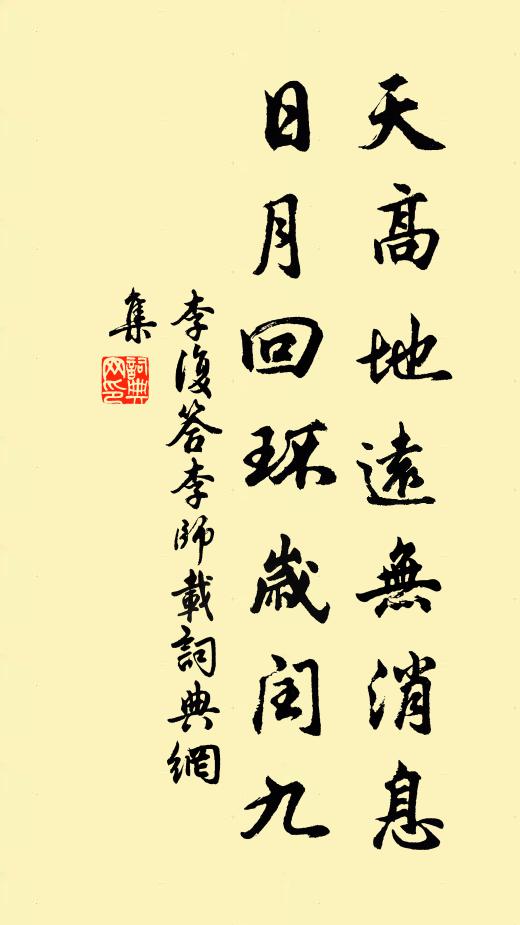 天高地遠無消息
日月回环歲闰九
李復答李師載詞典網
集
詞典
网印